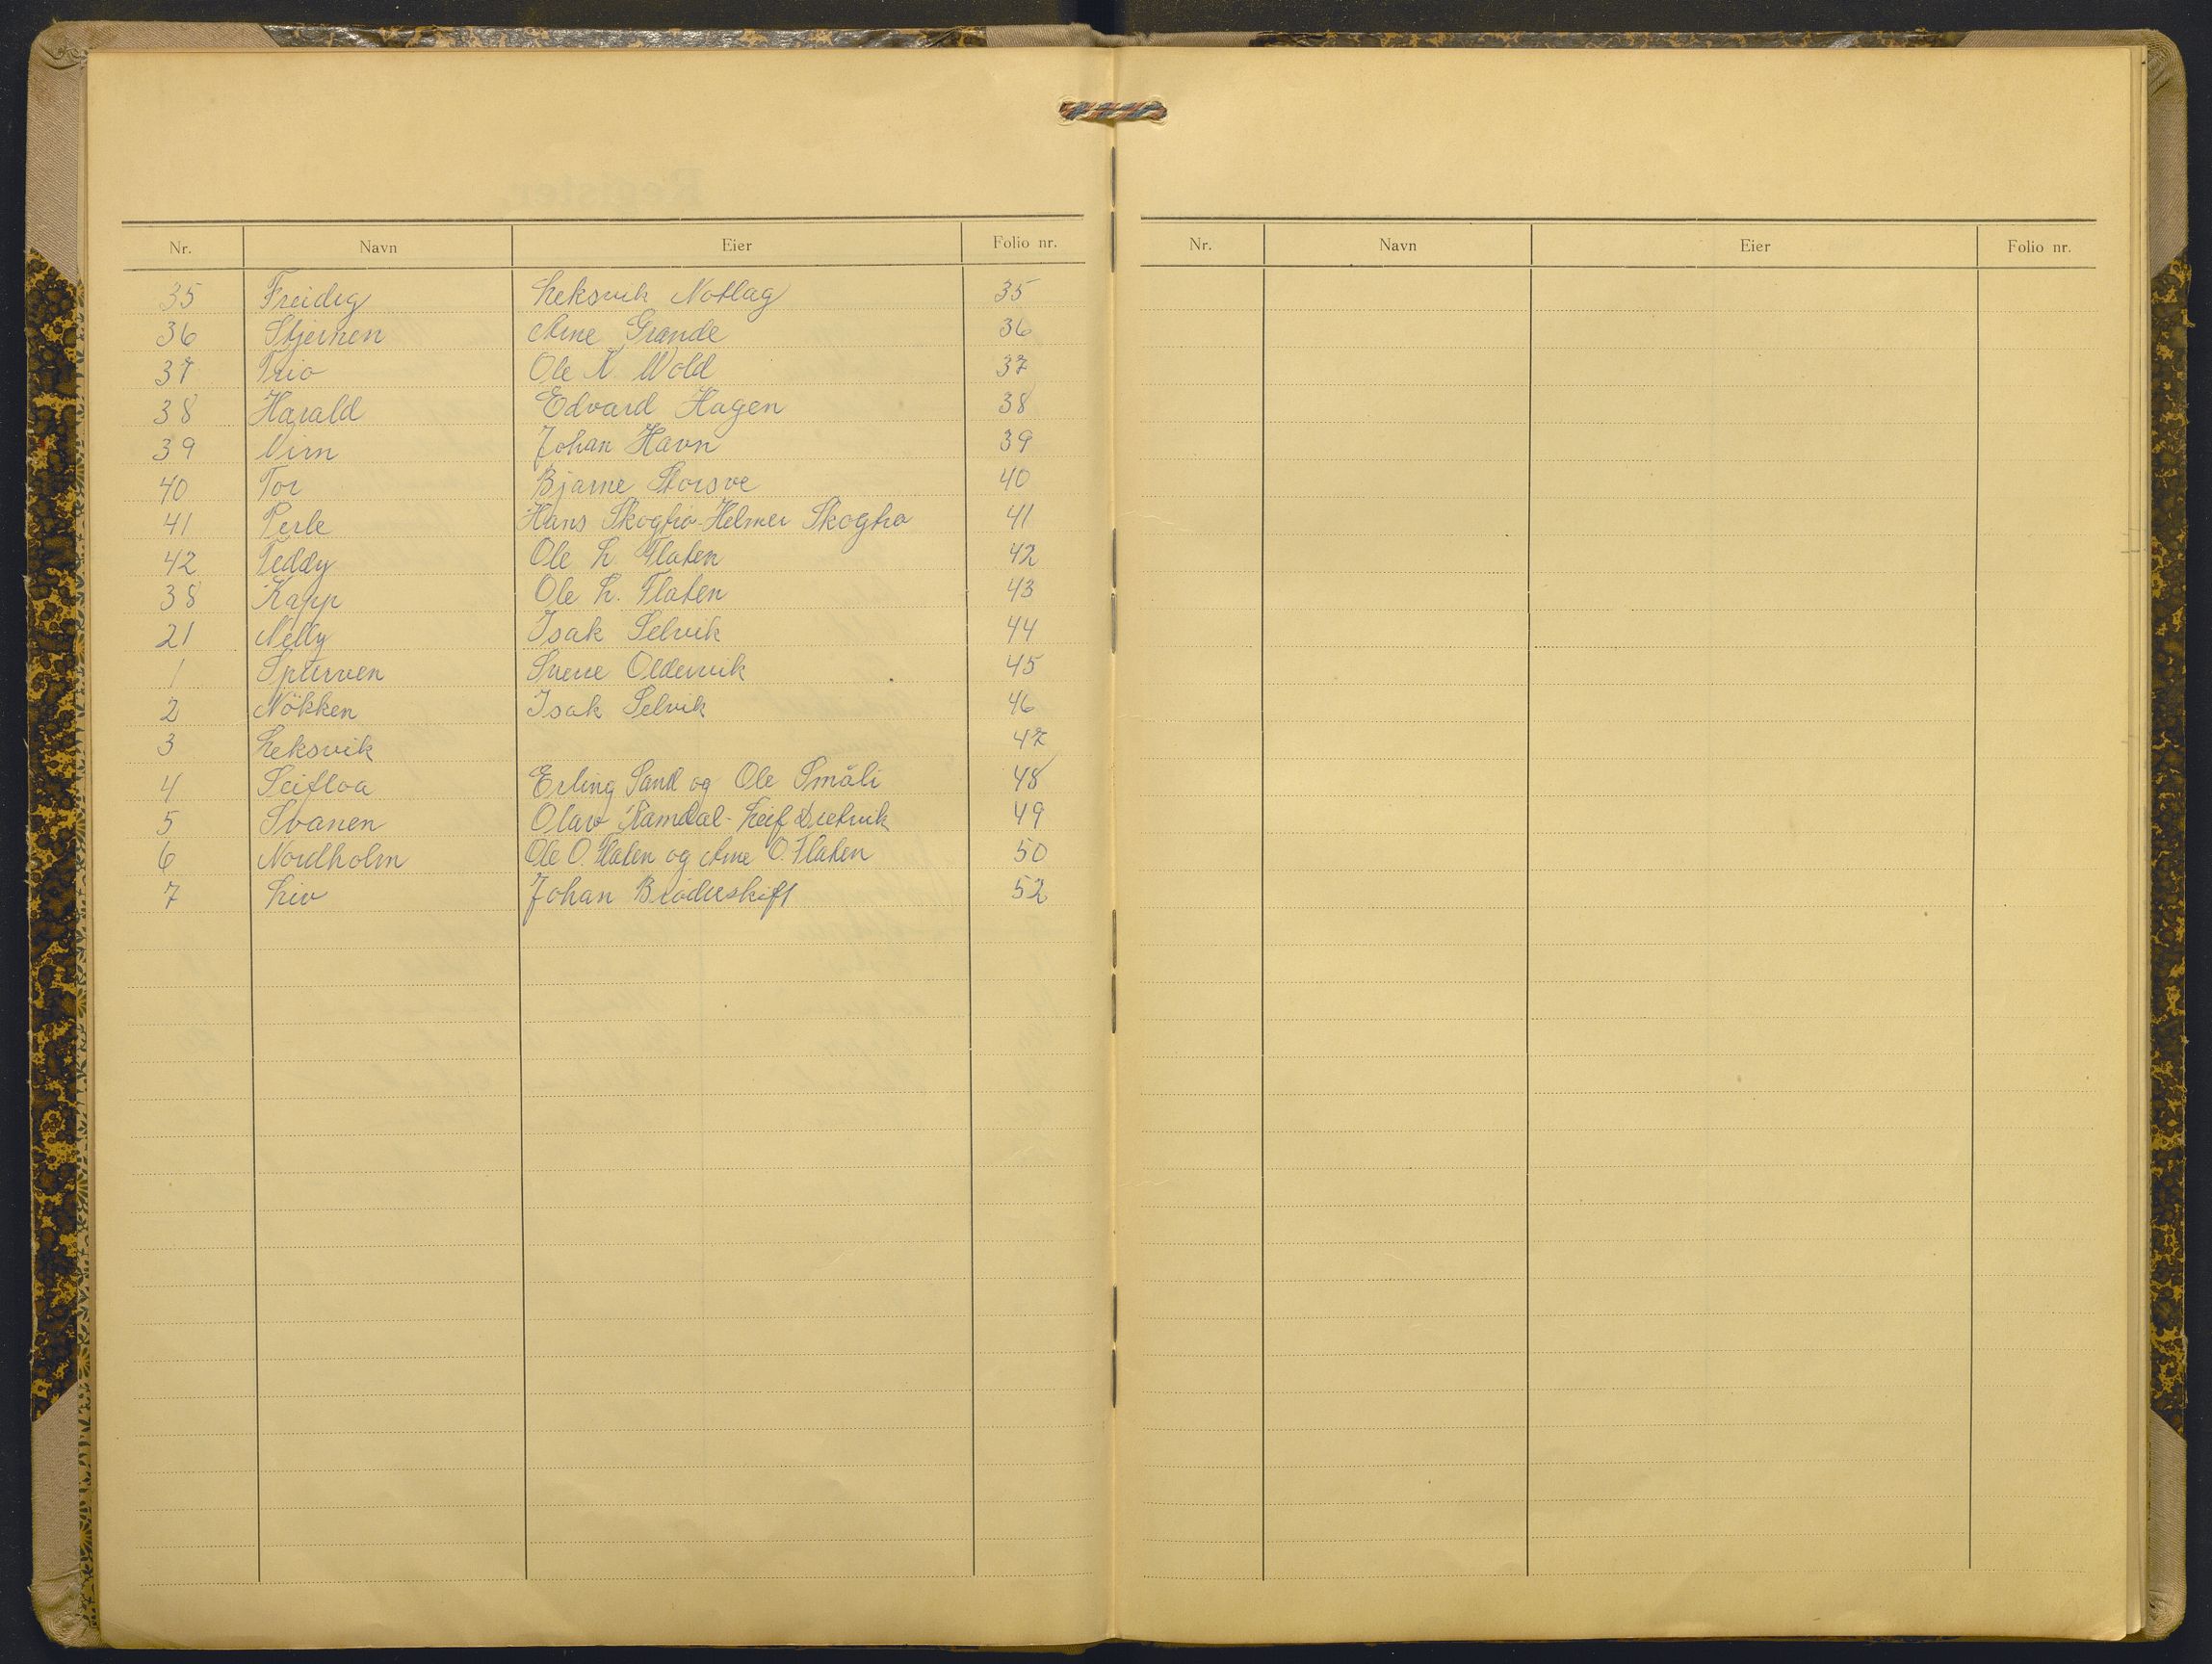 Nr. Navn Eier Folio nr.
35 Freidig Leksvik Notlag 35
36 Stjernen Arne Grande 36
37 Trio Ole K Wold 37
38 Harald Edvard Hagen 38
39 Virn Johan Havn 39
40 Tor Bjarne Storsve 40
41 Perle Hans Skoghø - Helmer Skoghø 41
42 Teddy Ole L Flaten 42
38 Kapp Ole L. Flaten 43
21 Nelly Isak Selvik 44
1 Spurven Sverre Oldervik 45
2 Nökken Isak Selvik 46
3 Leksvik 47
4 Seifloa Erling Sand og Ole Småli 48
5 Svanen Olav Ramdal - Leif Dretvik 49
6 Nordholm Ole O. Flaten og Arne O. Flaten 50
7 Liv Johan Brøderskift 52
Nr. Navn Eier Folio nr.